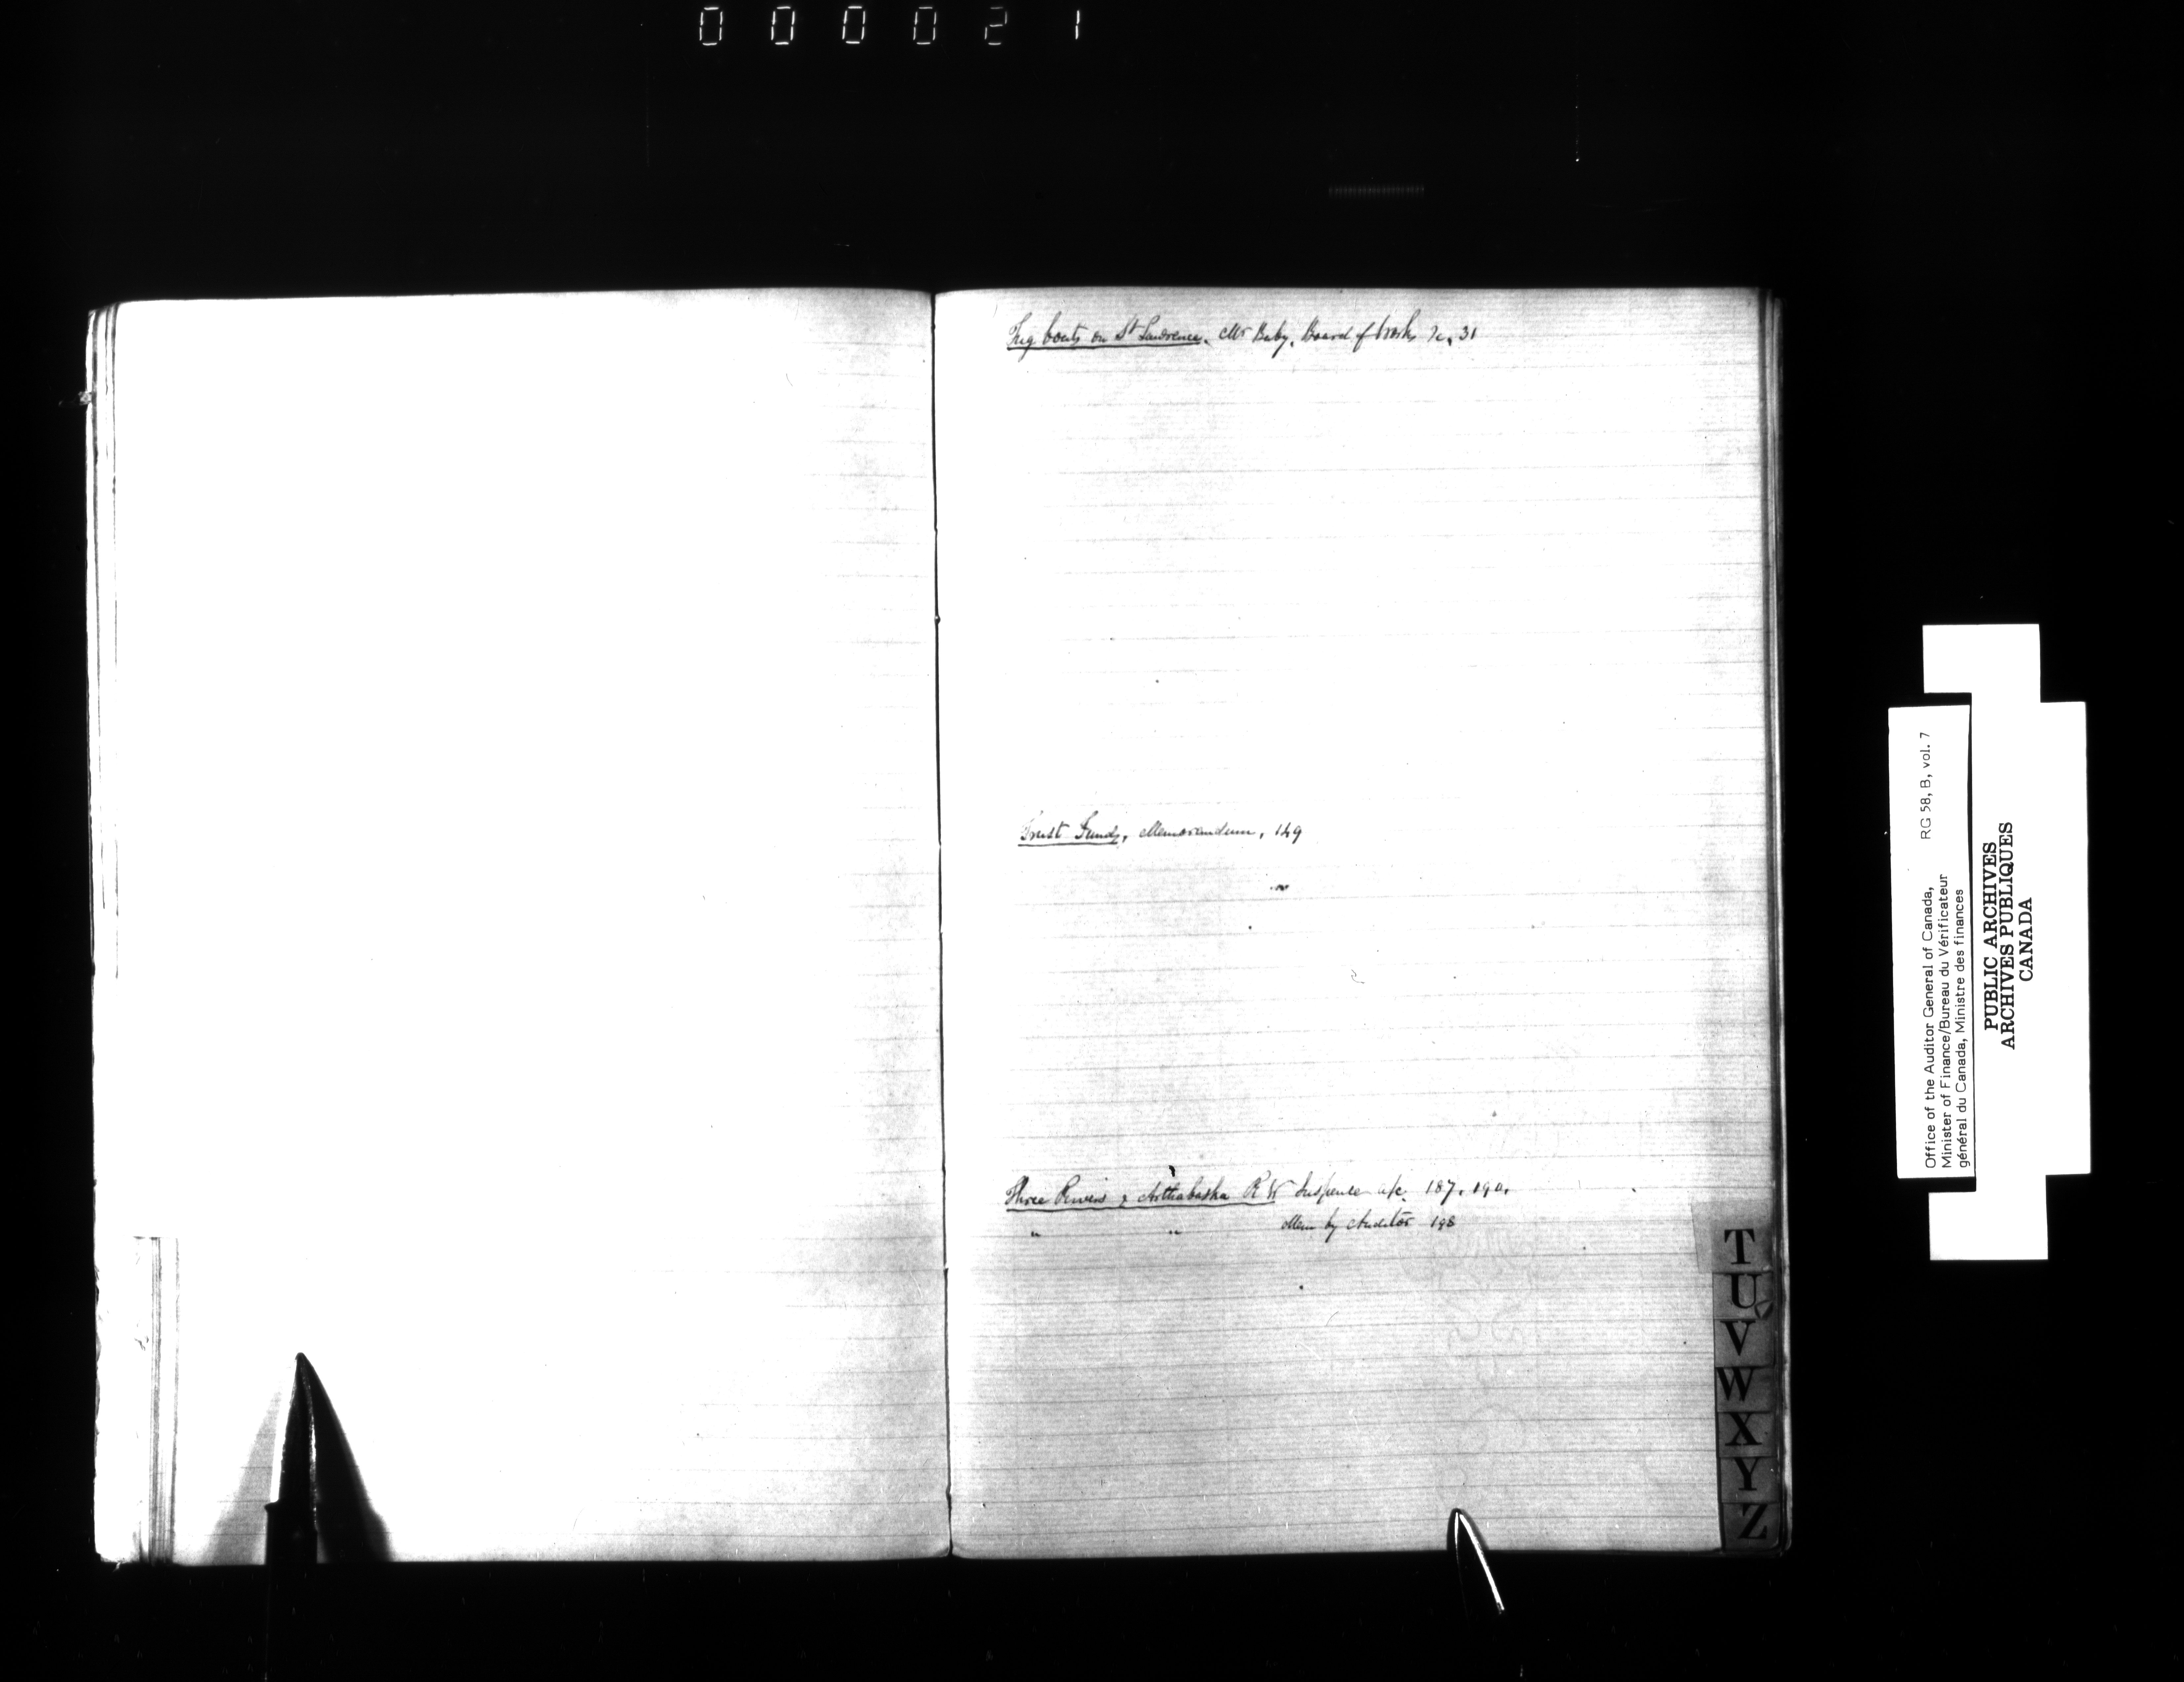 000021
Tug boats on St Lawrence, Mr Baby, Board of Works &c, 31
Trust Funds, Memorandum, 149
Three Rivers & Arthabaska R W Suspense a/c. 187, 190,
" " Mem by Auditor 198
T
U
V
W
X
Y
Z
Office of the Auditor General of Canada, RG 58, B, vol. 7
Minister of Finance/Bureau du Vérificateur
général du Canada, Ministre des finances
PUBLIC ARCHIVES
ARCHIVES PUBLIQUES
CANADA